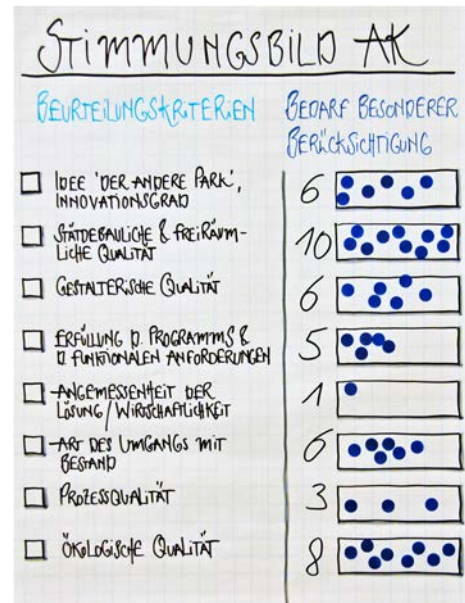 STIMMUNGSBILD AK
BEURTEILUNGSKRITERIEN
BEDARF BESONDERER
BERÜCKSICHTIGUNG
IDEE 'DER ANDERE PARK',
INNOVATIONSGRAD
6
STÄDTEBAULICHE & FREIRÄUM-
LICHE QUALITÄT
10
GESTALTERISCHE QUALITÄT
6
ERFÜLLUNG D. PROGRAMMS &
D. FUNKTIONALEN ANFORDERUNGEN
5
ANGEMESSENHEIT DER
LÖSUNG/WIRTSCHAFTLICHKEIT
1
ART DES UMGANGS MIT
BESTAND
6
PROZESSQUALITÄT
3
ÖKOLOGISCHE QUALITÄT
8